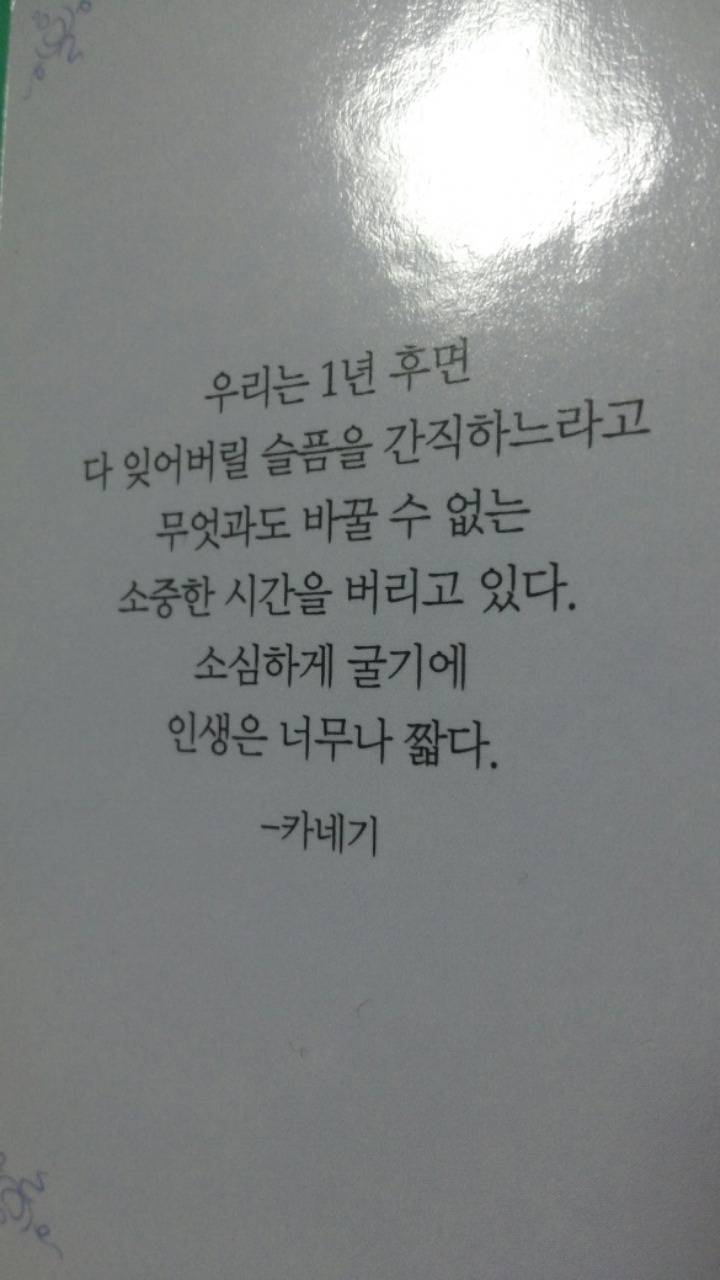 우리는 1년 후면
다 잊어버릴 슬픔을 간직하느라고
무엇과도 바꿀 수 없는
소중한 시간을 버리고 있다.
소심하게 굴기에
인생은 너무나 짧다.
-카네기